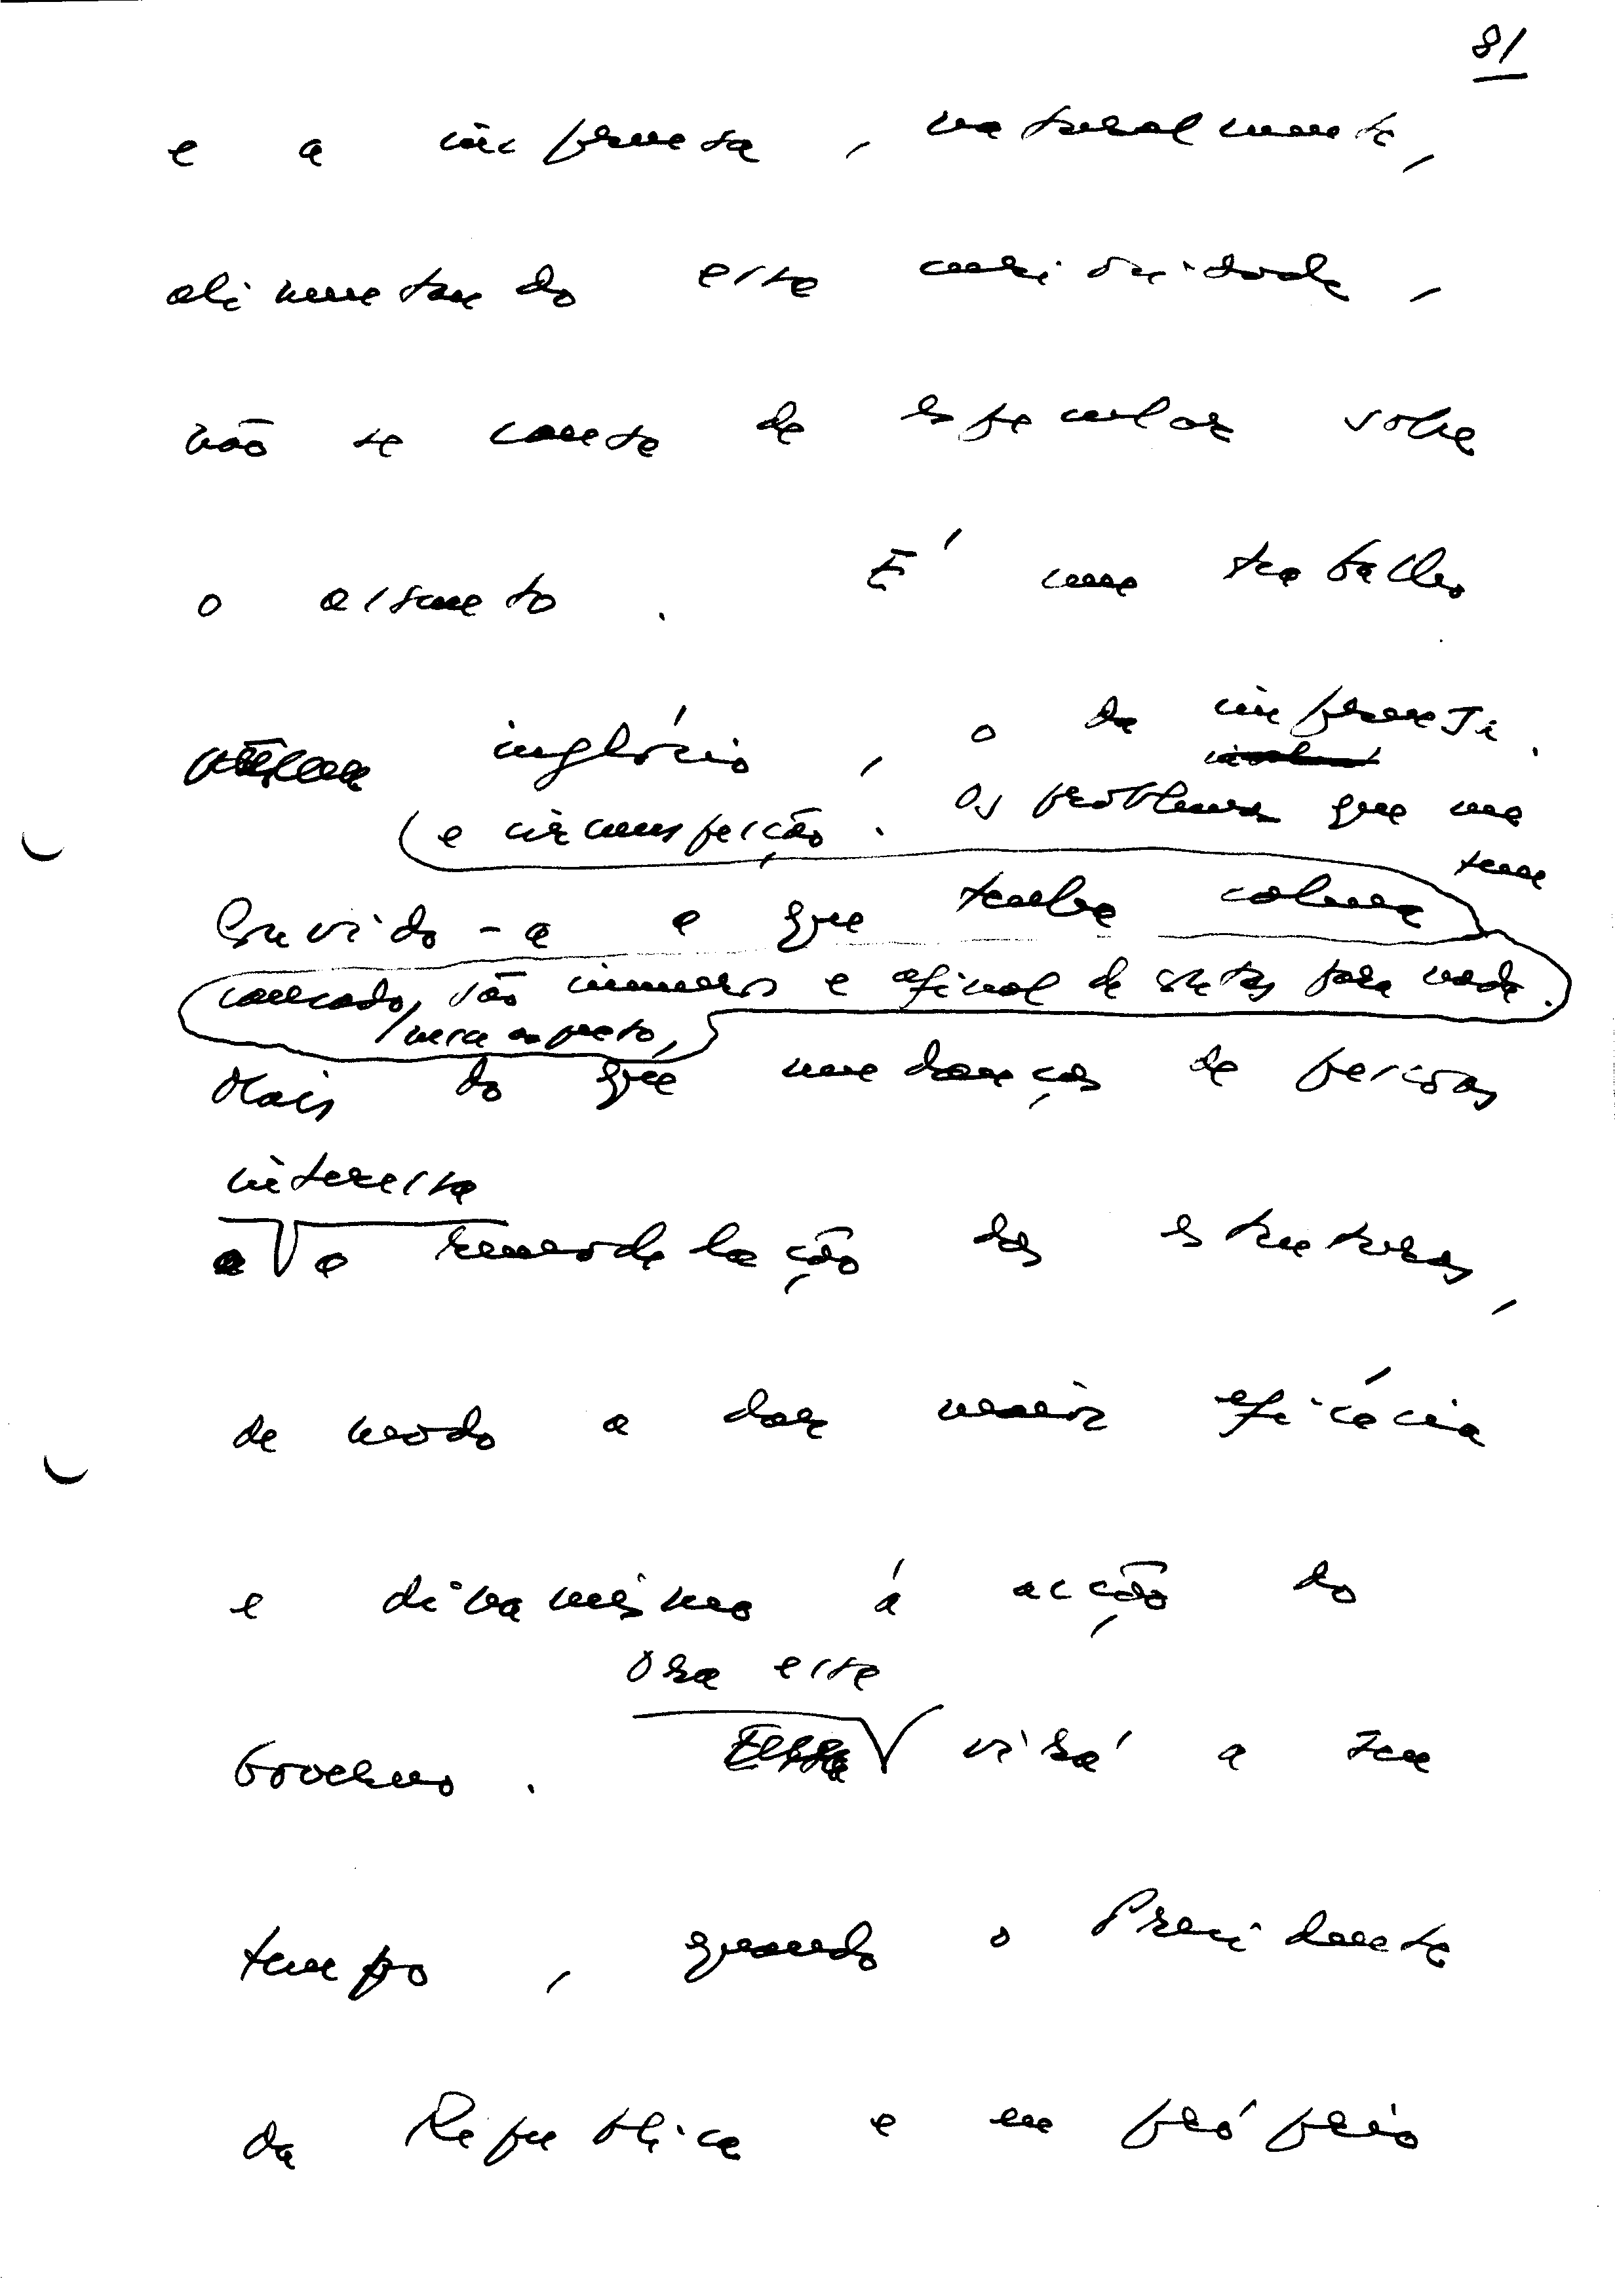 81
e a imprensa, naturalmente,
alimentando esta curiosidade,
não se cansa de especular sobre
o assunto. É um trabalho
inglório, o da imprensa.
e circunspecção. Os problemas que me tem
Convido-a a que tenha calma
causado, são inúmeros e afinal de contas para nada.
Mais do que mudanças de pessoas
interessa
a remodelação das estruturas,
de modo a dar maior eficácia
e dinamismo á acção do
Ora esta
Governo. virá a seu
tempo, quando o Presidente
da República e eu próprio